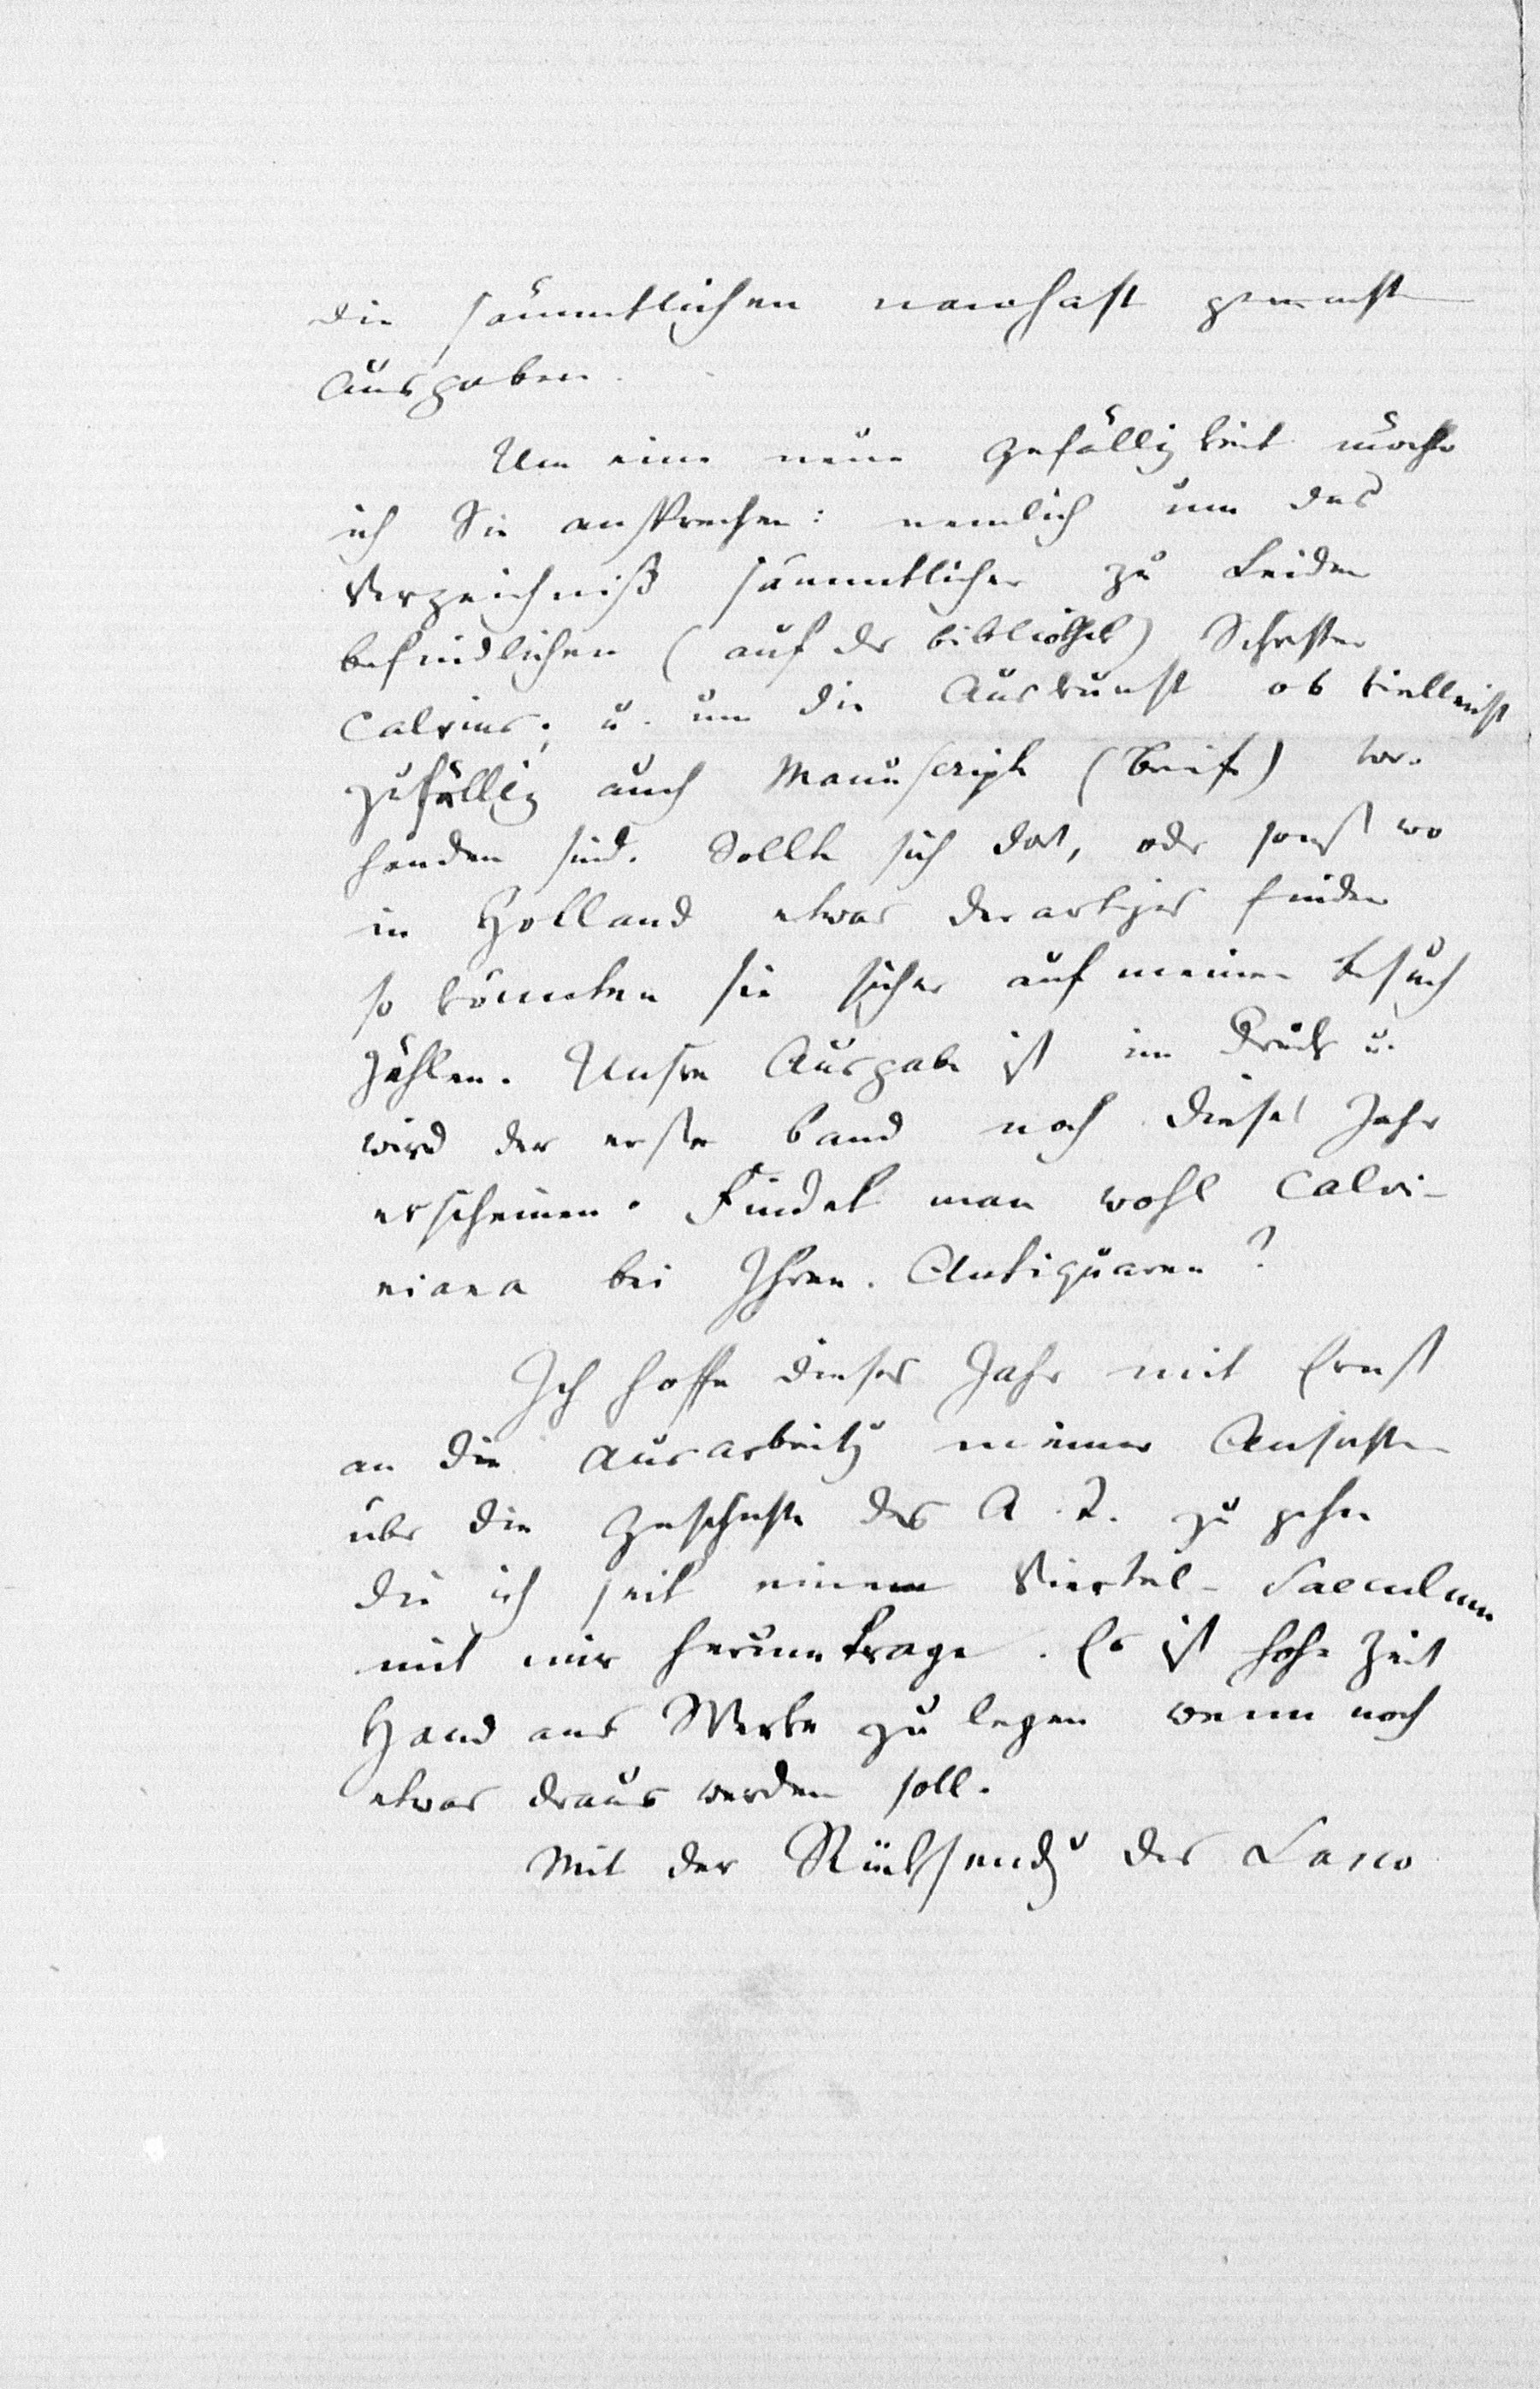 die sämmtlichen namhaft gemachten
Ausgaben.
Um eine neue Gefälligkeit möchte
ich Sie ansprechen: nemlich um das
Verzeichniß sämmtlicher zu Leiden
befindlichen (auf der bibliothek) Schriften
Calvins; u. um die Auskunft ob vielleicht
zufällig auch Manuscripte (Briefe) vor-
handen sind. Sollte sich dort, oder sonst wo
in Holland etwas derartiges finden
so könnten sie sicher auf meinen Besuch
zählen. Unsre Ausgabe ist im Druck u.
wird der erste Band noch dieses Jahr
erscheinen. Findet man wohl Calvi-
niana bei Ihren Antiquaren?
Ich hoffe dieses Jahr mit Ernst
an die Ausarbeitg meiner Ansichten
über die Geschichte des A. T. zu gehen
die ich seit einem Viertel-Saeculum
mit mir herumtrage. Es ist hohe Zeit
Hand ans Werke zu legen wenn noch
etwas draus werden soll.
Mit der Rücksendg des Lasco